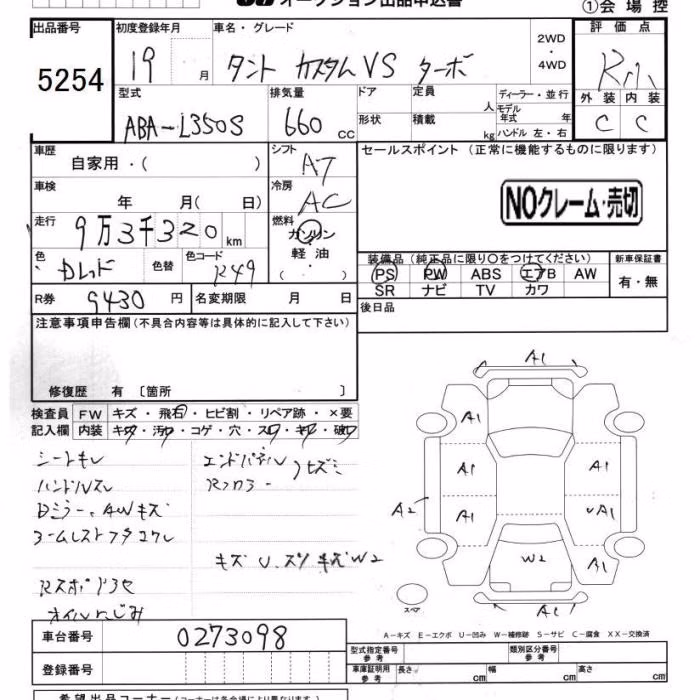 オークション出品申込書
①会場控
出品番号 初度登録年月 車名・グレード 評価点
5254 19 月 タント カスタムVS ターボ 2WD ・ 4WD
型式 排気量 ドア 定員 人 ディーラー・並行 外装 内装
ABA-L350S 660 CC 形状 積載 kg モデル年式 年 ハンドル 左・右 C C
車歴 自家用・( ) シフト AT セールスポイント (正常に機能するものに限ります)
車検 年 月( 日) 冷房 AC
NOクレーム・売切
走行 9万3千320 km 燃料 ガソリン・軽油・( )
色 色替 色コード R49
装備品 (純正品に限り○をつけてください) 新車保証書
PS PW ABS エアB AW 有・無
SR ナビ TV カワ
R券 9430 円 名変期限 月 日 後日品
注意事項申告欄(不具合内容等は具体的に記入して下さい)
修復歴 有 [箇所 ]
検査員 FW キズ・飛石・ヒビ割・リペア跡・×要
記入欄 内装 キズ・汚レ・コゲ・穴・スレ・キレ・破レ
シートキレ エンドパネル
ハンドルスレ Rフロアー
Dミラー、AWキズ
キズ U、 W2
オイルにじみ
A1
A1
A1 A1
A2 A1 A1
W2 A1
A1
スペア
A-キズ E-エクボ U-凹み W-補修跡 S-サビ C-腐食 XX-交換済
車台番号 0273098 型式指定番号 参考 類別区分番号 参考
登録番号 車庫証明用 参考 長さ cm 幅 cm 高さ cm
希望出品コーナー(コーナーは各会場により異なります)